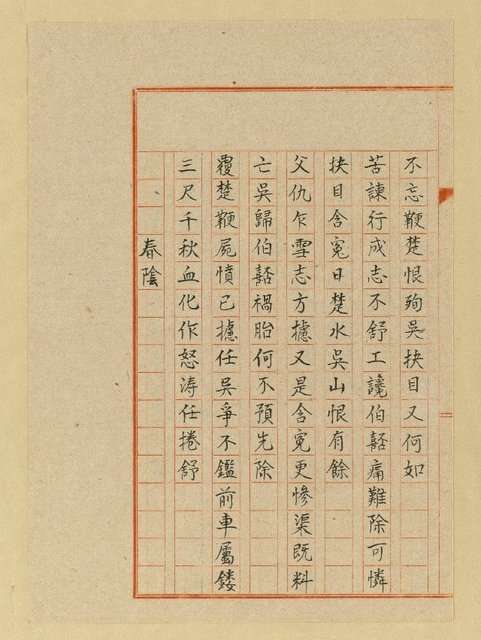 不忘鞭楚恨殉吳抉目又何如
苦諫行成志不舒工讒伯嚭痛難除可憐
抉目含冤日楚水吳山恨有餘
父仇乍雪志方攄又是含冤更慘渠既料
亡吳歸伯嚭禍胎何不預先除
覆楚鞭屍憤已攄任吳爭不鑑前車屬鏤
三尺千秋血化作怒濤任捲舒
春陰